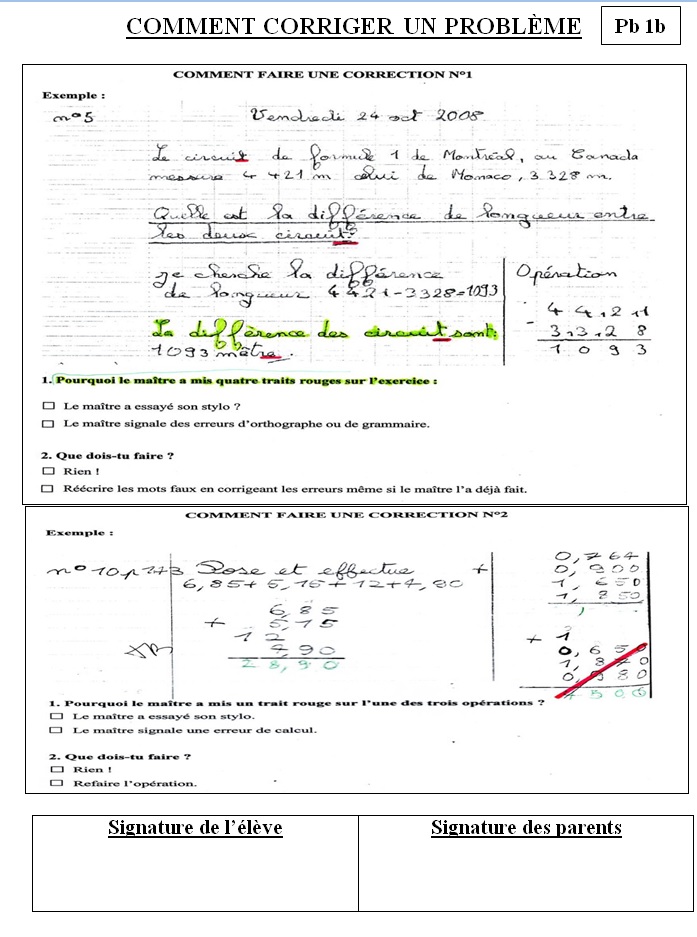 COMMENT CORRIGER UN PROBLÈME
Pb 1b
COMMENT FAIRE UNE CORRECTION N°1
Exemple :
n°5 Vendredi 24 oct 2008
Le circuit de formule 1 de Montréal, au Canada
messure 4 421 m celui de Monaco, 3 328 m.
Quelle est la différence de longueur entre
les deux circuit?
je cherche la différence
de longueur 4421-3328=1093
La différence des circuit sont:
1093 mètre.
Opération
4421
- 3328
1093
1. Pourquoi le maître a mis quatre traits rouges sur l'exercice :
Le maître a essayé son stylo ?
Le maître signale des erreurs d'orthographe ou de grammaire.
2. Que dois-tu faire ?
Rien !
Réécrire les mots faux en corrigeant les erreurs même si le maître l'a déjà fait.
COMMENT FAIRE UNE CORRECTION N°2
Exemple :
n°10 p Pose et effectue
6,85+ 5,15+12+4,90
6,85
+ 5,15
12
4,90
28,90
+ 0,764
0,900
1,650
1,850
,
+ 1
0,650
1,8 0
0, 80
1. Pourquoi le maître a mis un trait rouge sur l'une des trois opérations ?
Le maître a essayé son stylo.
Le maître signale une erreur de calcul.
2. Que dois-tu faire ?
Rien !
Refaire l'opération.
Signature de l'élève
Signature des parents